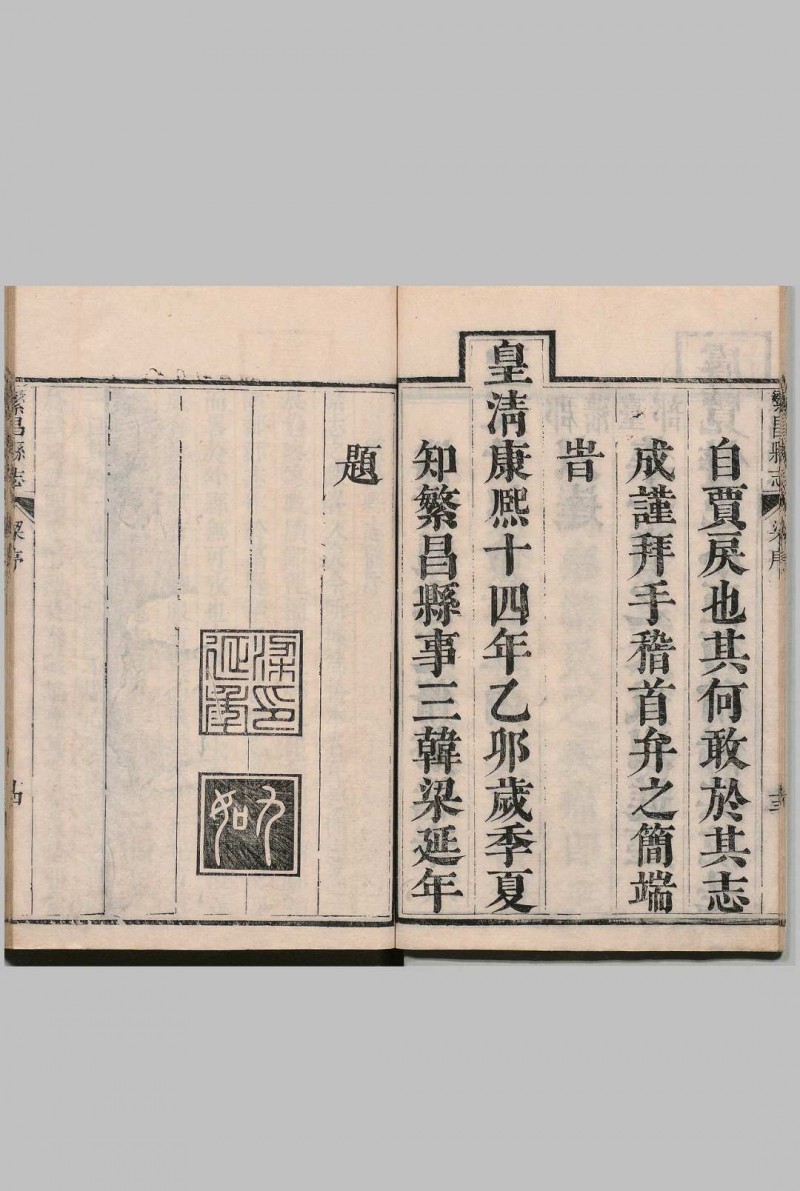 繁昌縣志
梁序
自賈戾也其何敢於其志
成謹拜手稽首弁之簡端
旹
皇清康熙十四年乙卯歲季夏
知繁昌縣事三韓梁延年
題
梁印延年
九如
繁昌縣志
梁序